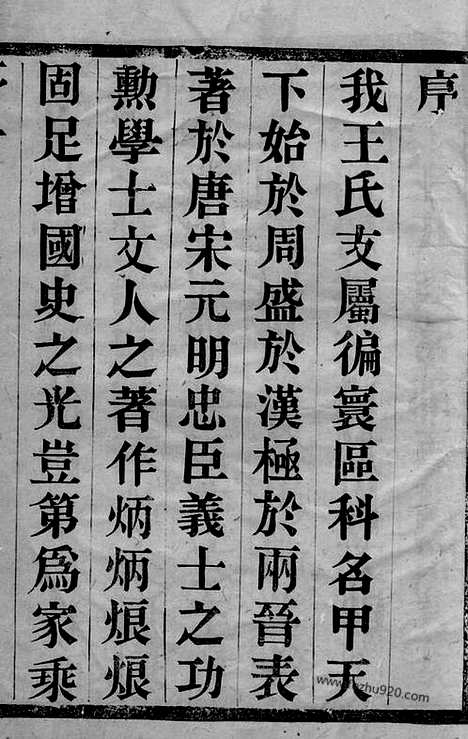 序
我王氏支屬徧寰區科名甲天
下始於周盛於漢極於兩晉表
著於唐宋元明忠臣義士之功
勲學士文人之著作炳炳烺烺
固足增國史之光豈第爲家乘
zhu920.com